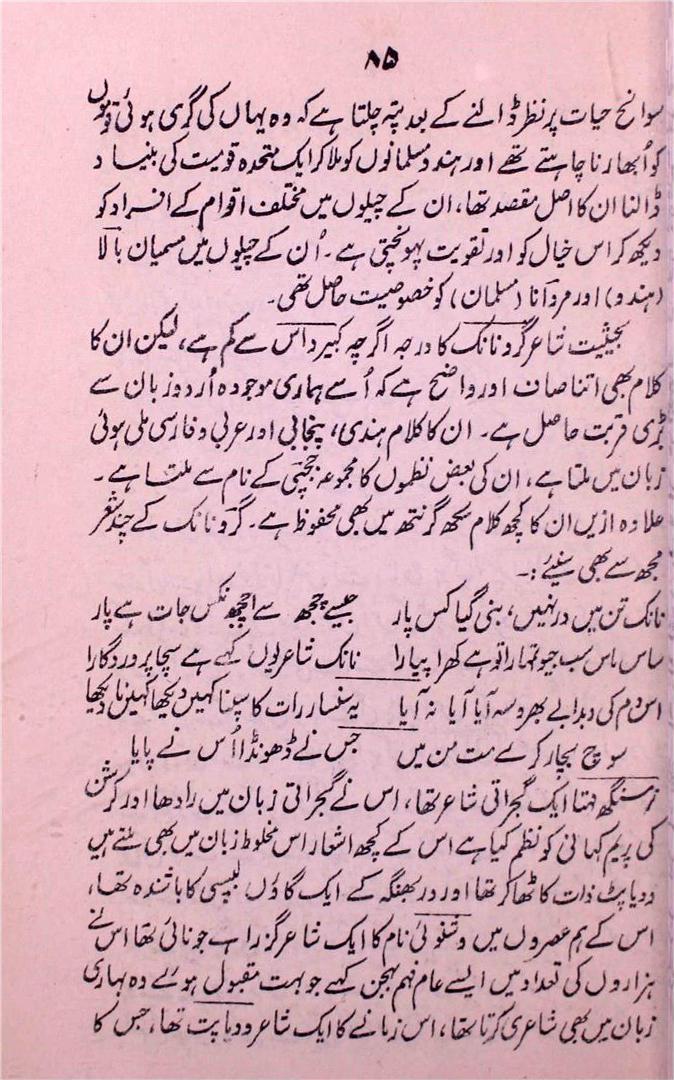 ۸۵
سوانح حیات پر نظر ڈالنے کے بعد پتہ چلتا ہے کہ وہ یہاں کی گری ہوئی قوموں
کو اُبھارنا چاہتے تھے اور ہندو مسلمانوں کو ملا کر ایک متحدہ قومیت کی بنیاد
ڈالنا ان کا اصل مقصد تھا، ان کے چیلوں میں مختلف اقوام کے افراد کو
دیکھ کر اس خیال کو اور تقویت پہونچتی ہے۔ اُن کے چیلوں میں مسمیان بالا
(ہندو) اور مردانا (مسلمان) کو خصوصیت حاصل تھی۔
بحیثیت شاعر گرو نانک کا درجہ اگرچہ کبیر داس سے کم ہے، لیکن ان کا
کلام بھی اتنا صاف اور واضح ہے کہ اُسے ہماری موجودہ اُردو زبان سے
بڑی قربت حاصل ہے۔ ان کا کلام ہندی، پنجابی اور عربی و فارسی ملی ہوئی
زبان میں ملتا ہے، ان کی بعض نظموں کا مجموعہ جپجی کے نام سے ملتا ہے۔
علاوہ ازیں ان کا کچھ کلام سکھ گرنتھ میں بھی محفوظ ہے۔ گرو نانک کے چند شعر
مجھ سے بھی سنیئے :۔
نانک تن میں در نہیں، بنی گیا کس پار جیسے چچھ سے اچھ نکس جات ہے پار
ساس ماس سب جیو تمہارا تو ہے کھرا پیارا نانک شاعر یوں کہے ہے سچا پروردگارا
اس دم کی دیدا بے بھروسہ آیا آیا نہ آیا یہ سنسار رات کا سپنا کہیں دیکھا کہیں نا دیکھا
سوچ بچار کرے مت من میں جس نے ڈھونڈا اُس نے پایا
نرسنگھ مہتا ایک گجراتی شاعر تھا، اس نے گجراتی زبان میں رادھا اور کرشن
کی پریم کہانی کو نظم کیا ہے اس کے کچھ اشعار اس مخلوط زبان میں بھی ملتے ہیں
ودیاپٹ ذات کا ٹھاکر تھا اور دربھنگہ کے ایک گاؤں لبپسی کا باشندہ تھا،
اس کے ہم عصروں میں وشنوئی نام کا ایک شاعر گزرا ہے جو نائی تھا اس نے
ہزاروں کی تعداد میں ایسے عام فہم بھجن کہے جو بہت مقبول ہوئے وہ بہاری
زبان میں بھی شاعری کرتا تھا، اس زمانے کا ایک شاعر ودیاپت تھا، جس کا